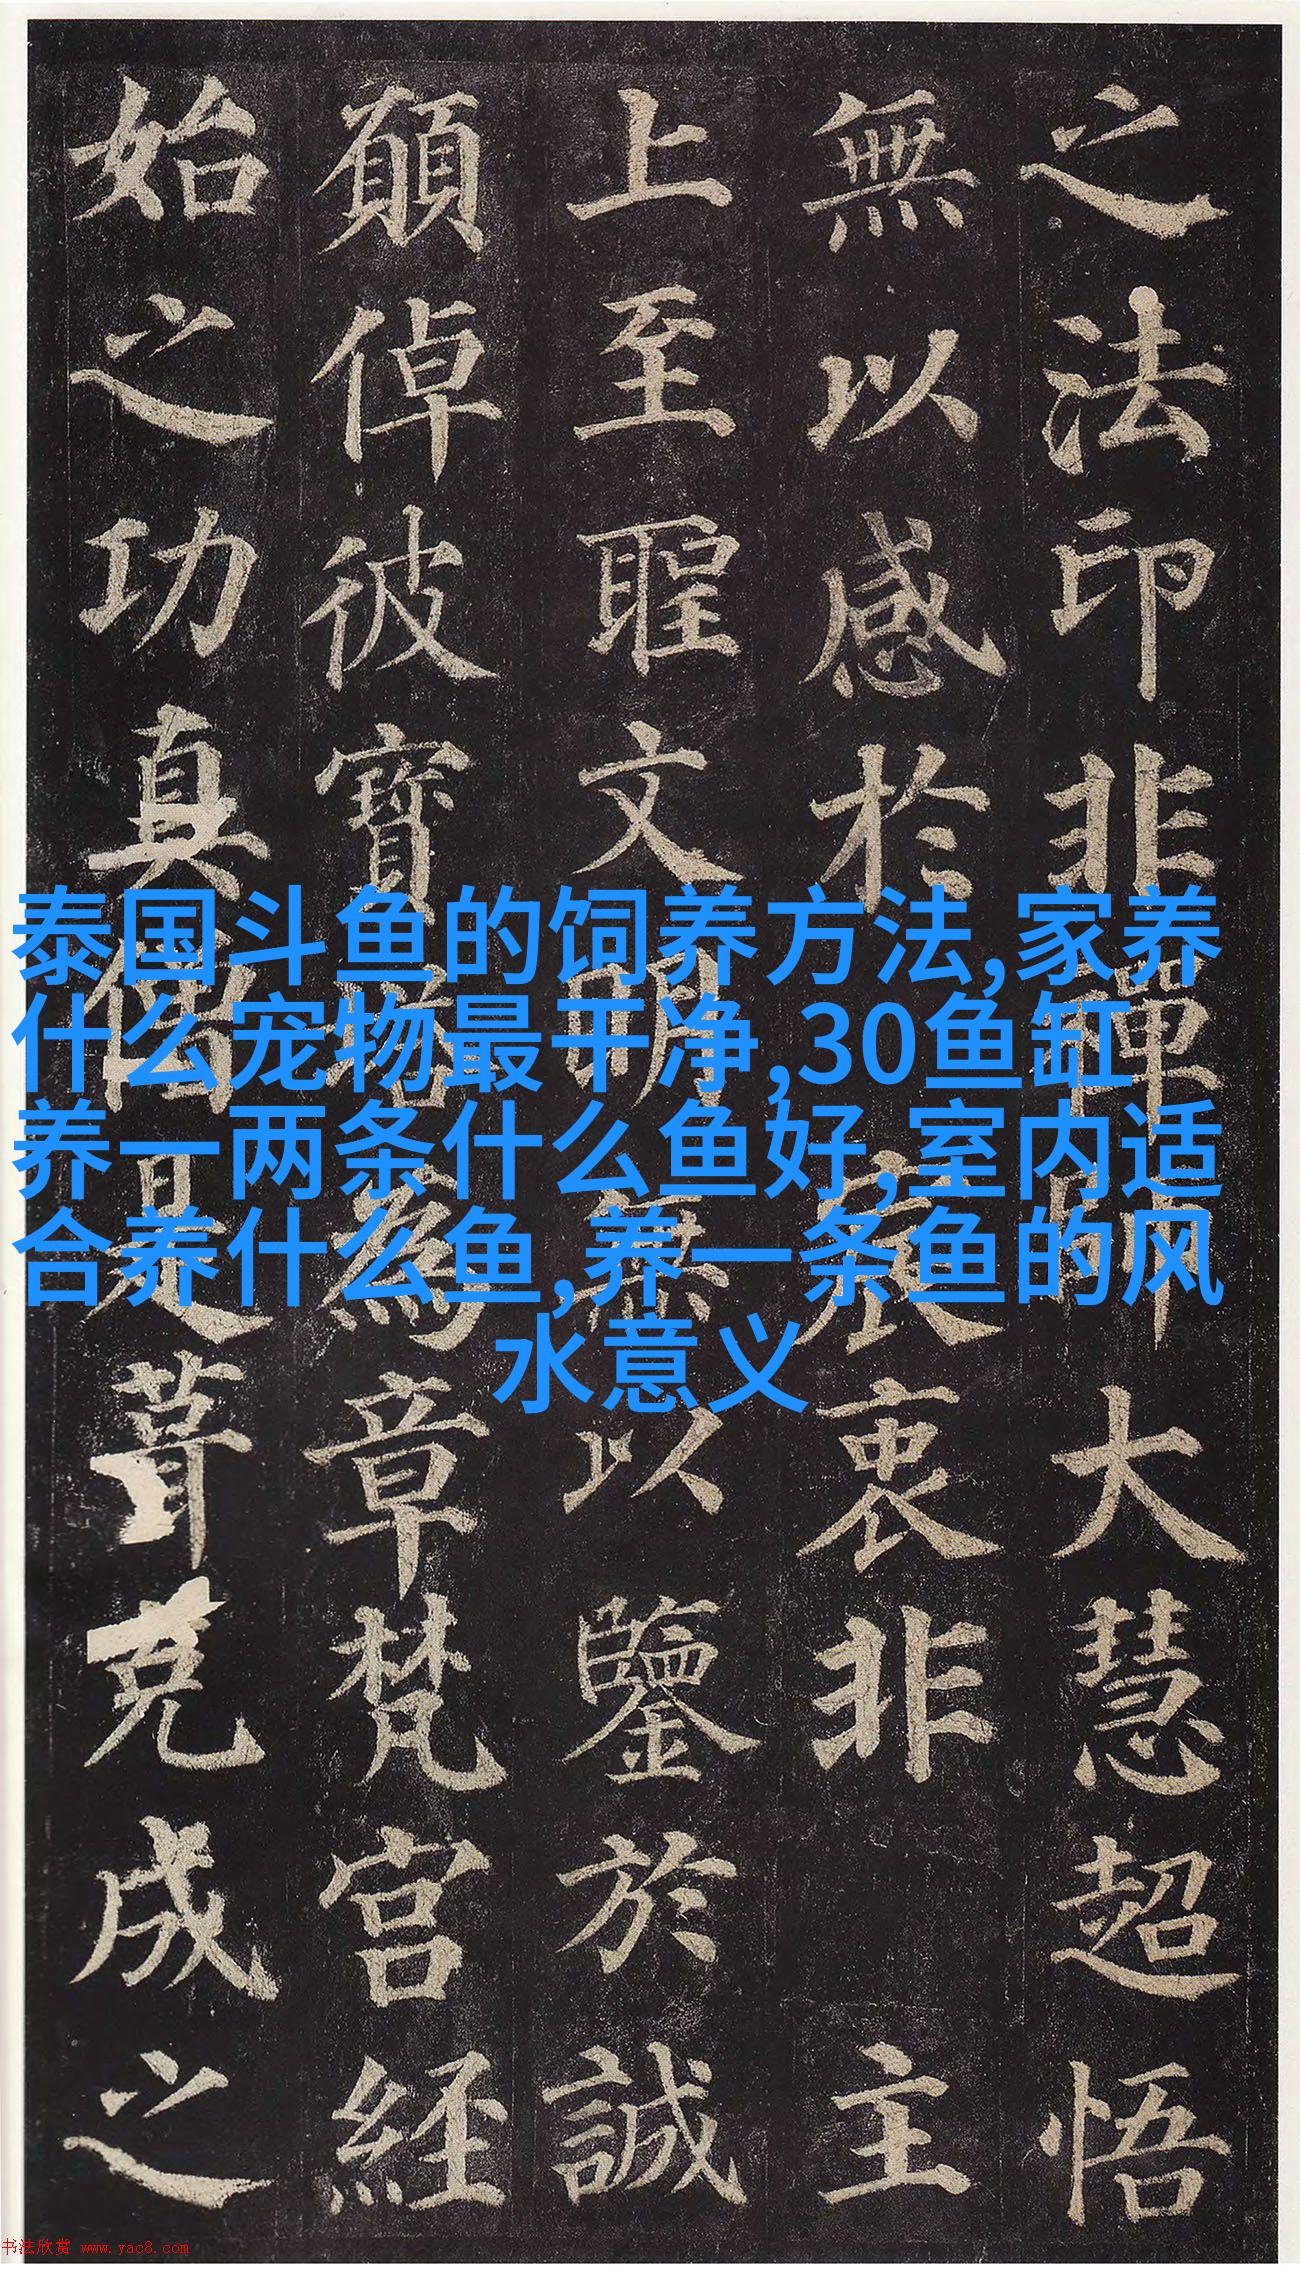 之法印非禪師大慧超悟
無以感於宸衷非主
上至聖文明無以鑒於誠
願倬彼寶塔為章梵宮経
始之功真僧是葺克成之
泰国斗鱼的饲养方法,家养
什么宠物最干净,30鱼缸
养一两条什么鱼好,室内适
合养什么鱼,养一条鱼的风
水意义
书法欣赏 www.yac8.com